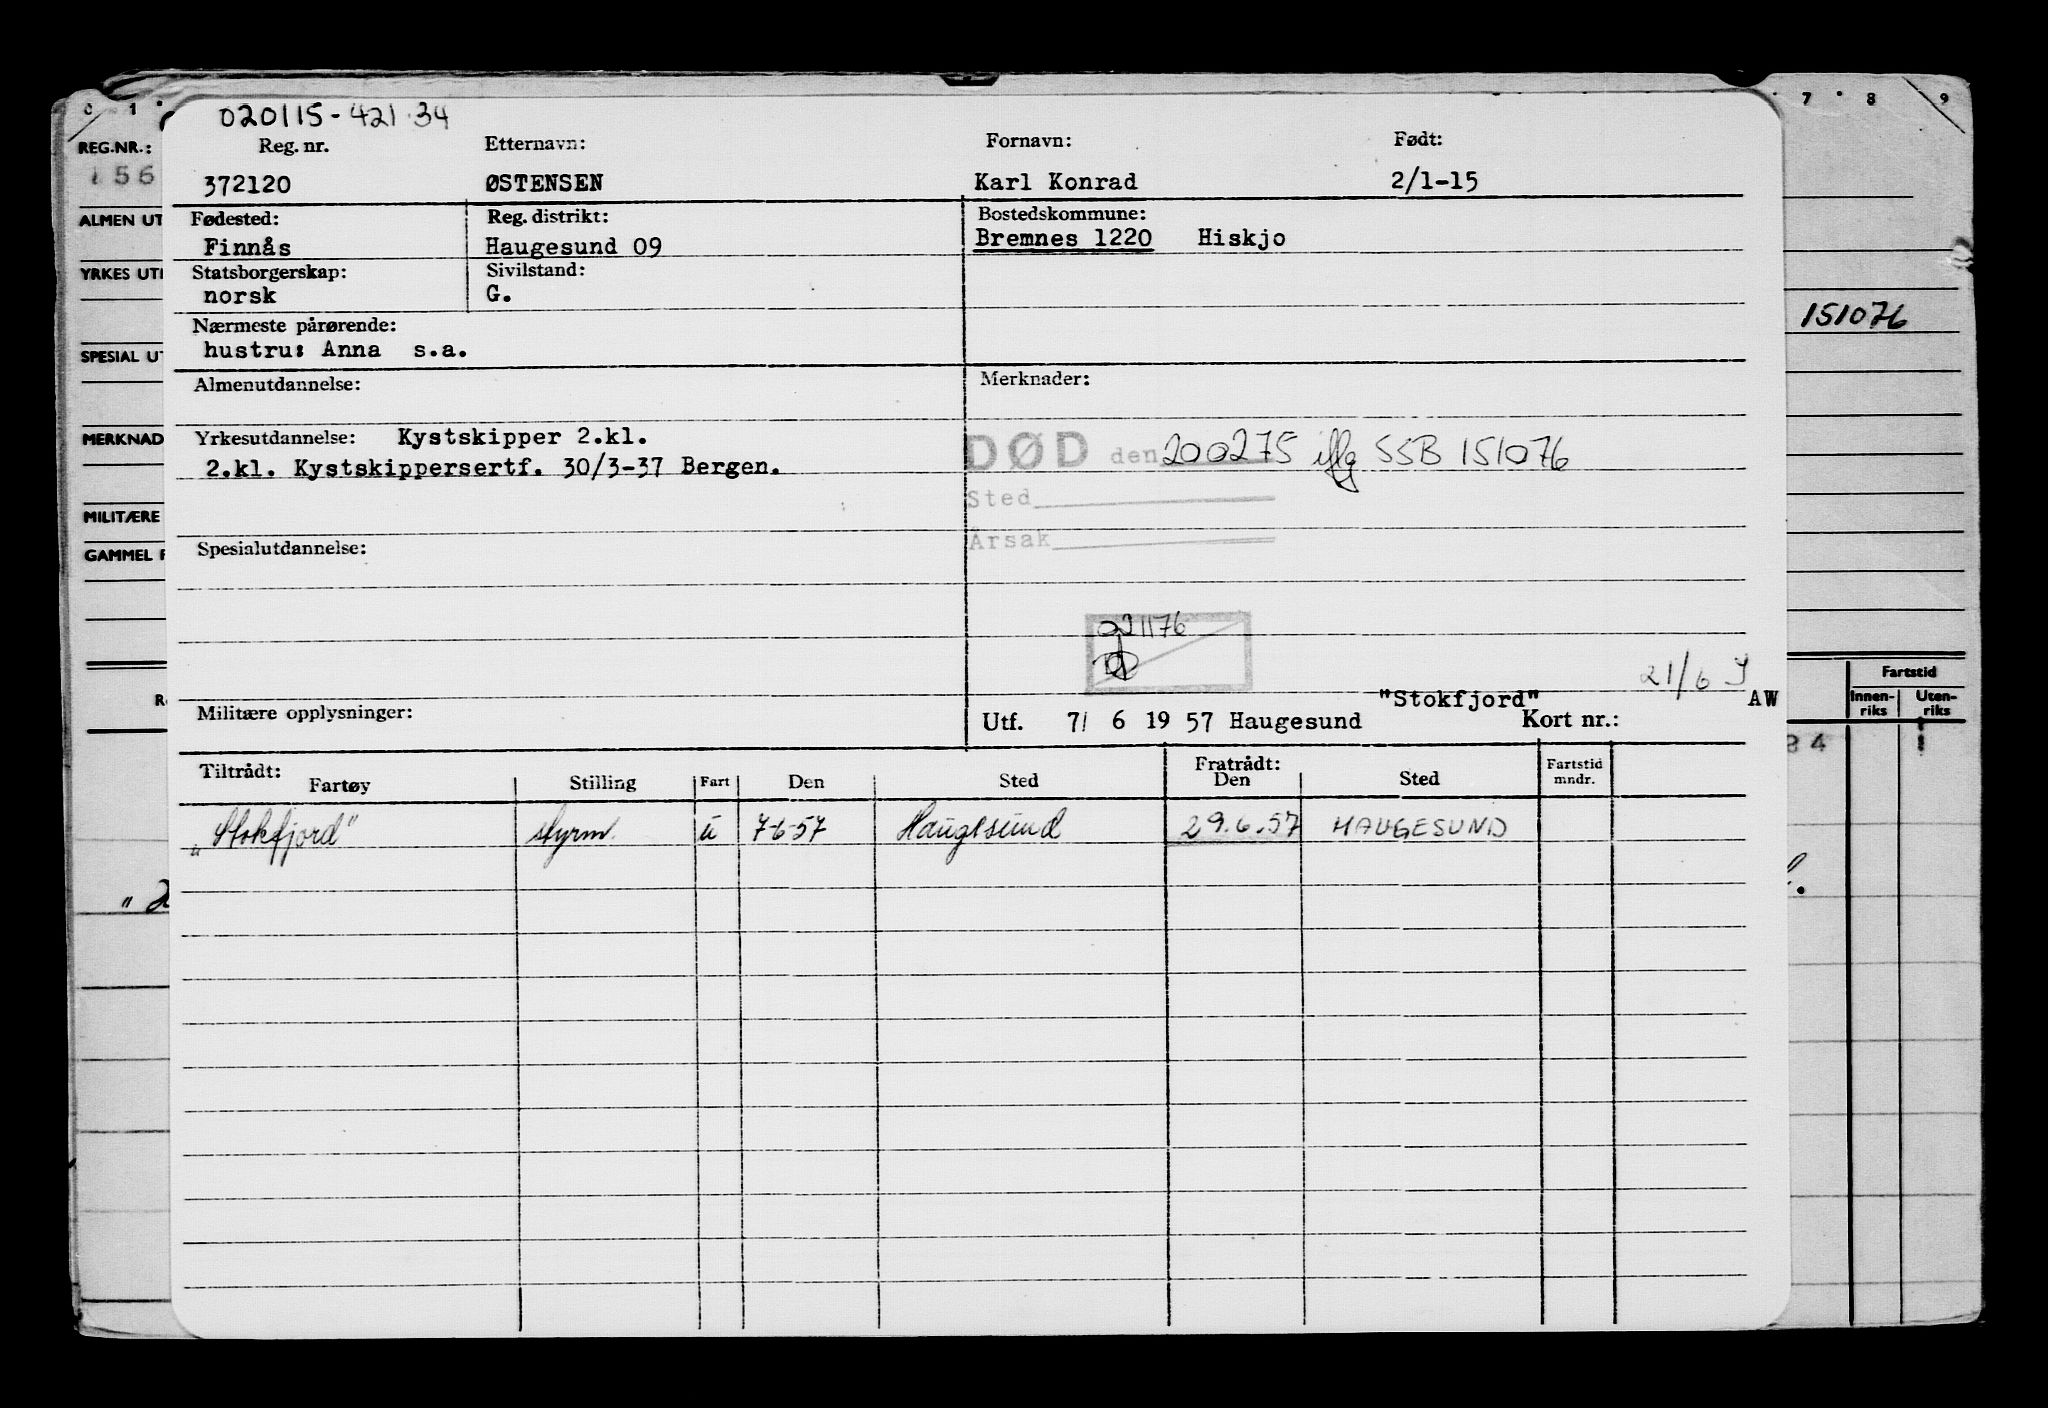 020115-421.34
Reg. nr. Etternavn: Fornavn: Født:
372120 ØSTENSEN Karl Konrad 2/1-15
Fødested: Reg. distrikt: Bostedskommune:
Finnås Haugesund 09 Bremnes 1220 Hiskjo
Statsborgerskap: Sivilstand:
norsk G.
Nærmeste pårørende:
hustru: Anna s.a.
Almenutdannelse: Merknader:
Yrkesutdannelse: Kystskipper 2.kl.
2.kl. Kystskippersertf. 30/3-37 Bergen.
DØD den 200275 iflg SSB 151076
Sted
Årsak
Spesialutdannelse:
021176
21/6
"Stokfjord" AW
Militære opplysninger: Utf. 7/ 6 19 57 Haugesund Kort nr.:
Tiltrådt: Fratrådt:
Fartøy Stilling Fart Den Sted Den Sted Fartstid mndr.
"Stokfjord" styrm. u 7-6-57 Haugesund 29.6.57 HAUGESUND
0 1 7 8 9
REG.NR.:
156
ALMEN UT
YRKES UT
151076
SPESIAL UT
MERKNAD
MILITÆRE
GAMMEL
Fartstid
Innen-riks Uten-riks